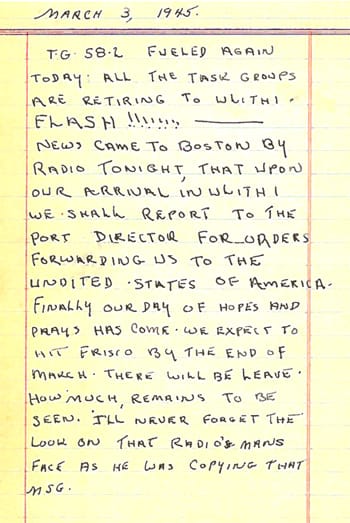 MARCH 3, 1945.
T.G. 58.2 FUELED AGAIN
TODAY: ALL THE TASK GROUPS
ARE RETIRING TO ULITHI.
FLASH !!!!!!!!
NEWS CAME TO BOSTON BY
RADIO TONIGHT, THAT UPON
OUR ARRIVAL IN ULITHI
WE SHALL REPORT TO THE
PORT DIRECTOR FOR ORDERS
FORWARDING US TO THE
UNDITED STATES OF AMERICA.
FINALLY OUR DAY OF HOPES AND
PRAYS HAS COME. WE EXPECT TO
HIT FRISCO BY THE END OF
MARCH. THERE WILL BE LEAVE.
HOW MUCH, REMAINS TO BE
SEEN. I'LL NEVER FORGET THE
LOOK ON THAT RADIO'S MANS
FACE AS HE WAS COPYING THAT
MSG.